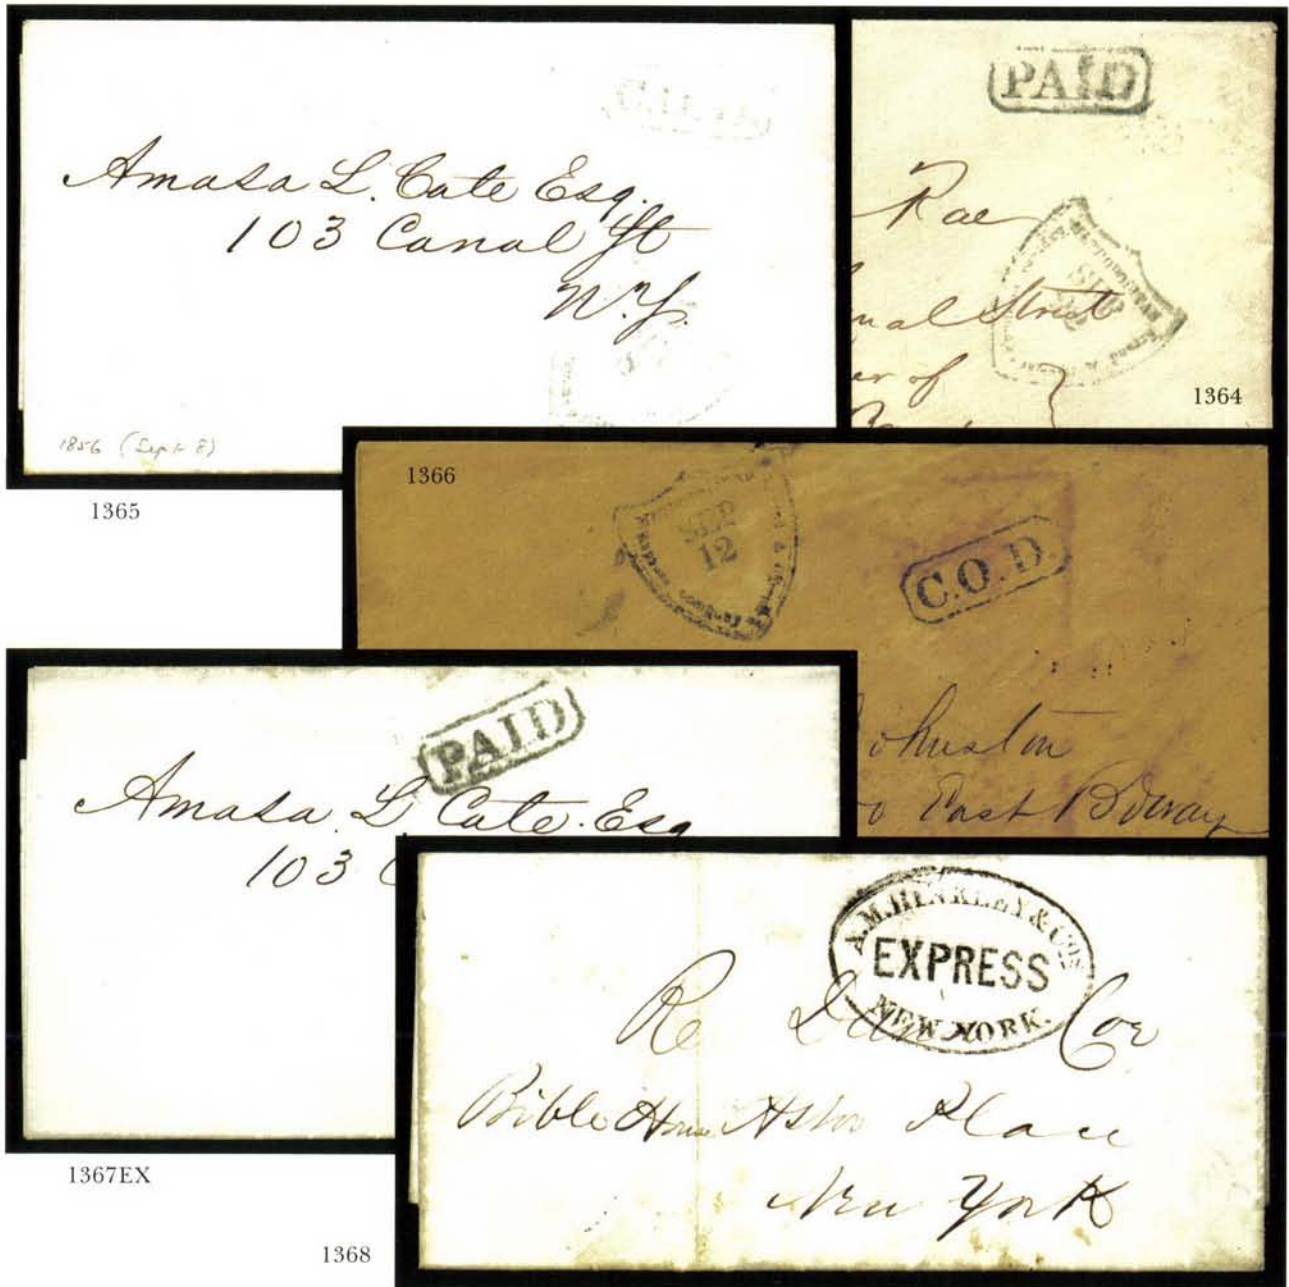 C.O.D.
Amasa L. Cate Esq.
103 Canal St
N.Y.
1856 (Sept 8)
1365
PAID
Rae
METROPOLITAN
SEP
nal Street
er of
1364
1366
SEP
12
C.O.D.
ohnston
o East Bdway
PAID
Amasa L Cate. Esq
103 C
1367EX
A.M. HINKLEY & CO'S
EXPRESS
NEW YORK.
R Coe
Bible House Astor Place
New York
1368